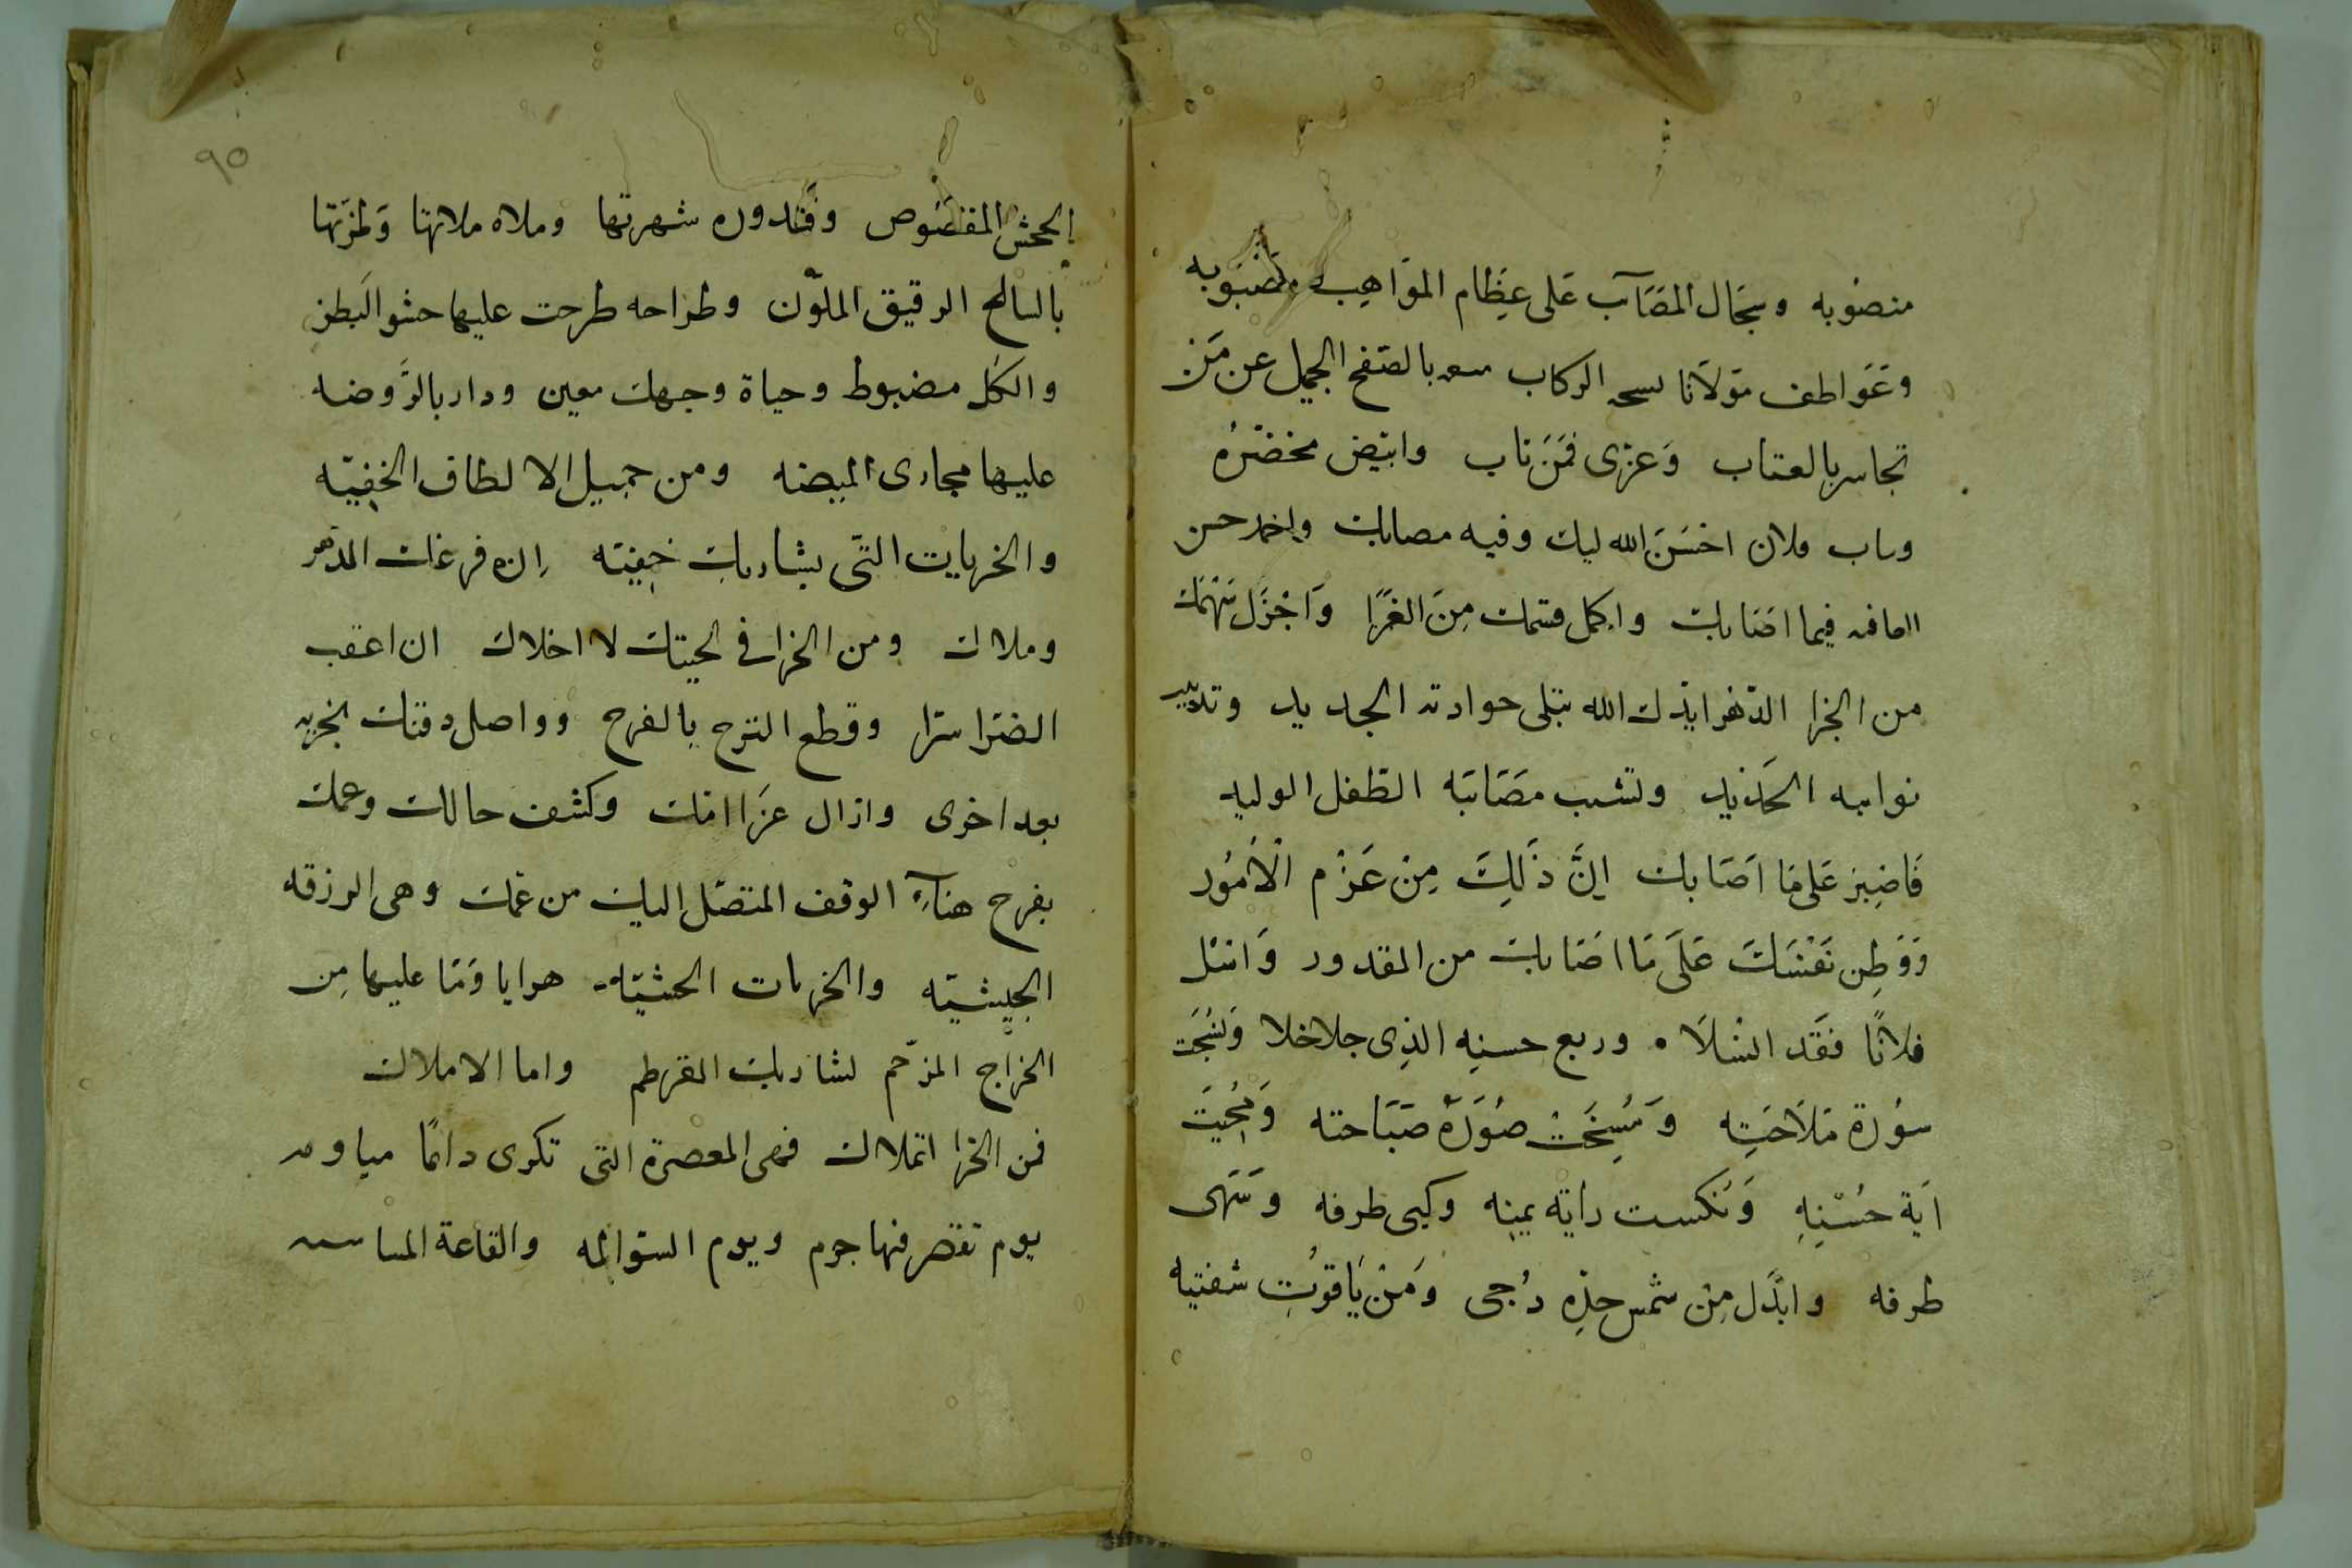 منصوبه وسجال المصآب على عظام المواهب مصبوبه
وعواطف مولانا الركاب بالصفح الجميل عن من
تجاسر بالعتاب وعزى فمن ناب وابيض مخضره
وناب فلان احسن الله اليك وفيه مصابك
فيما اصابك واكمل قسمك من الغرا واجزل سهمك
من الجزا الدهر ايدك الله تبلى حوادثه الجديد وتدبير
نوايبه الحديد وتشيب مصائبه الطفل الوليد
فَاصْبِرْ عَلى مَا اَصَابك اِنَّ ذَلِكَ مِنْ عَزْم الْاُمُور
وَوَطِن نَفْسَكَ عَلَى مَا اصَابك من المقدور وَاسْل
فلانًا فقد السلاه وربع حسنه الذى جلا خلا وَنُسِخَت
سُورة مَلَاحَتِه وَمُسِخَتْ صُوَرَة صَبَاحته وَمُحِيَت
آية حُسْنِهِ وَنكست راية يمنه وكبى طرفه وَسَهى
طرفه وابدل مِن شمس خده دُجى وَمن يَاقوُت شفتيه
٩٥
الجحش المقصوص وقندوره شهرتها وملاه ملاتها وَطرزتها
بالسالح الرقيق الملوّن وطراحه طرحت عليها حشو البطن
والكل مضبوط وحياة وجهك معين ودار بالروضه
عليها مجارى المبيضه ومن جميل الالطاف الخفيّه
والخريات التى بشاربك خفيّه اِن فرغك الدهر
وملاك ومن الخرا فى لحيتك لا اخلاك ان اعقب
الضرا سرا وقطع الترح بالفرح وواصل دقنك بخريه
بعد اخرى وازال عزا امك وكشف حالك وعمك
بفرح هناءِ الوقف المتصل اليك من عمك وهى الرزقه
الجيشيّه والخريات الحشيّه هدايا ومَا عليها مِن
الخراج المزحم لشاربك القرطم واما الاملاك
فمن الخرا اتملاك فهى المعصرة التى تكرى دائمًا مياومه
يوم تقصر فيها جرم ويوم السوالمه والقاعة